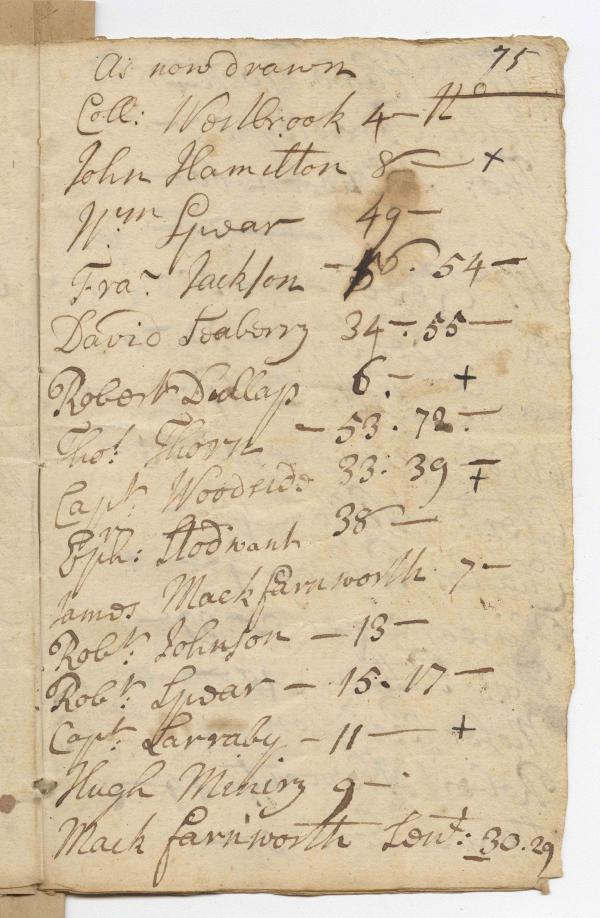 75
As now drawn
Coll: Westbrook 4 — No
John Hamilton 8 — +
Wm Spear 49 —
Fra: Jackson — 56. 54 —
David Seaberry 34 — 55 —
Robert Dudlap 6 — +
Tho: Thorn — 53. 72. —
Capt: Woodside 33. 39 — +
Eph: Stodwant 38 —
James Mackfarnworth 7 —
Robt: Johnson — 13 —
Robt: Spear — 15. 17 —
Capt: Larraby — 11 — +
Hugh Meniry 9 —
Mack farnworth Senr: 30. 29